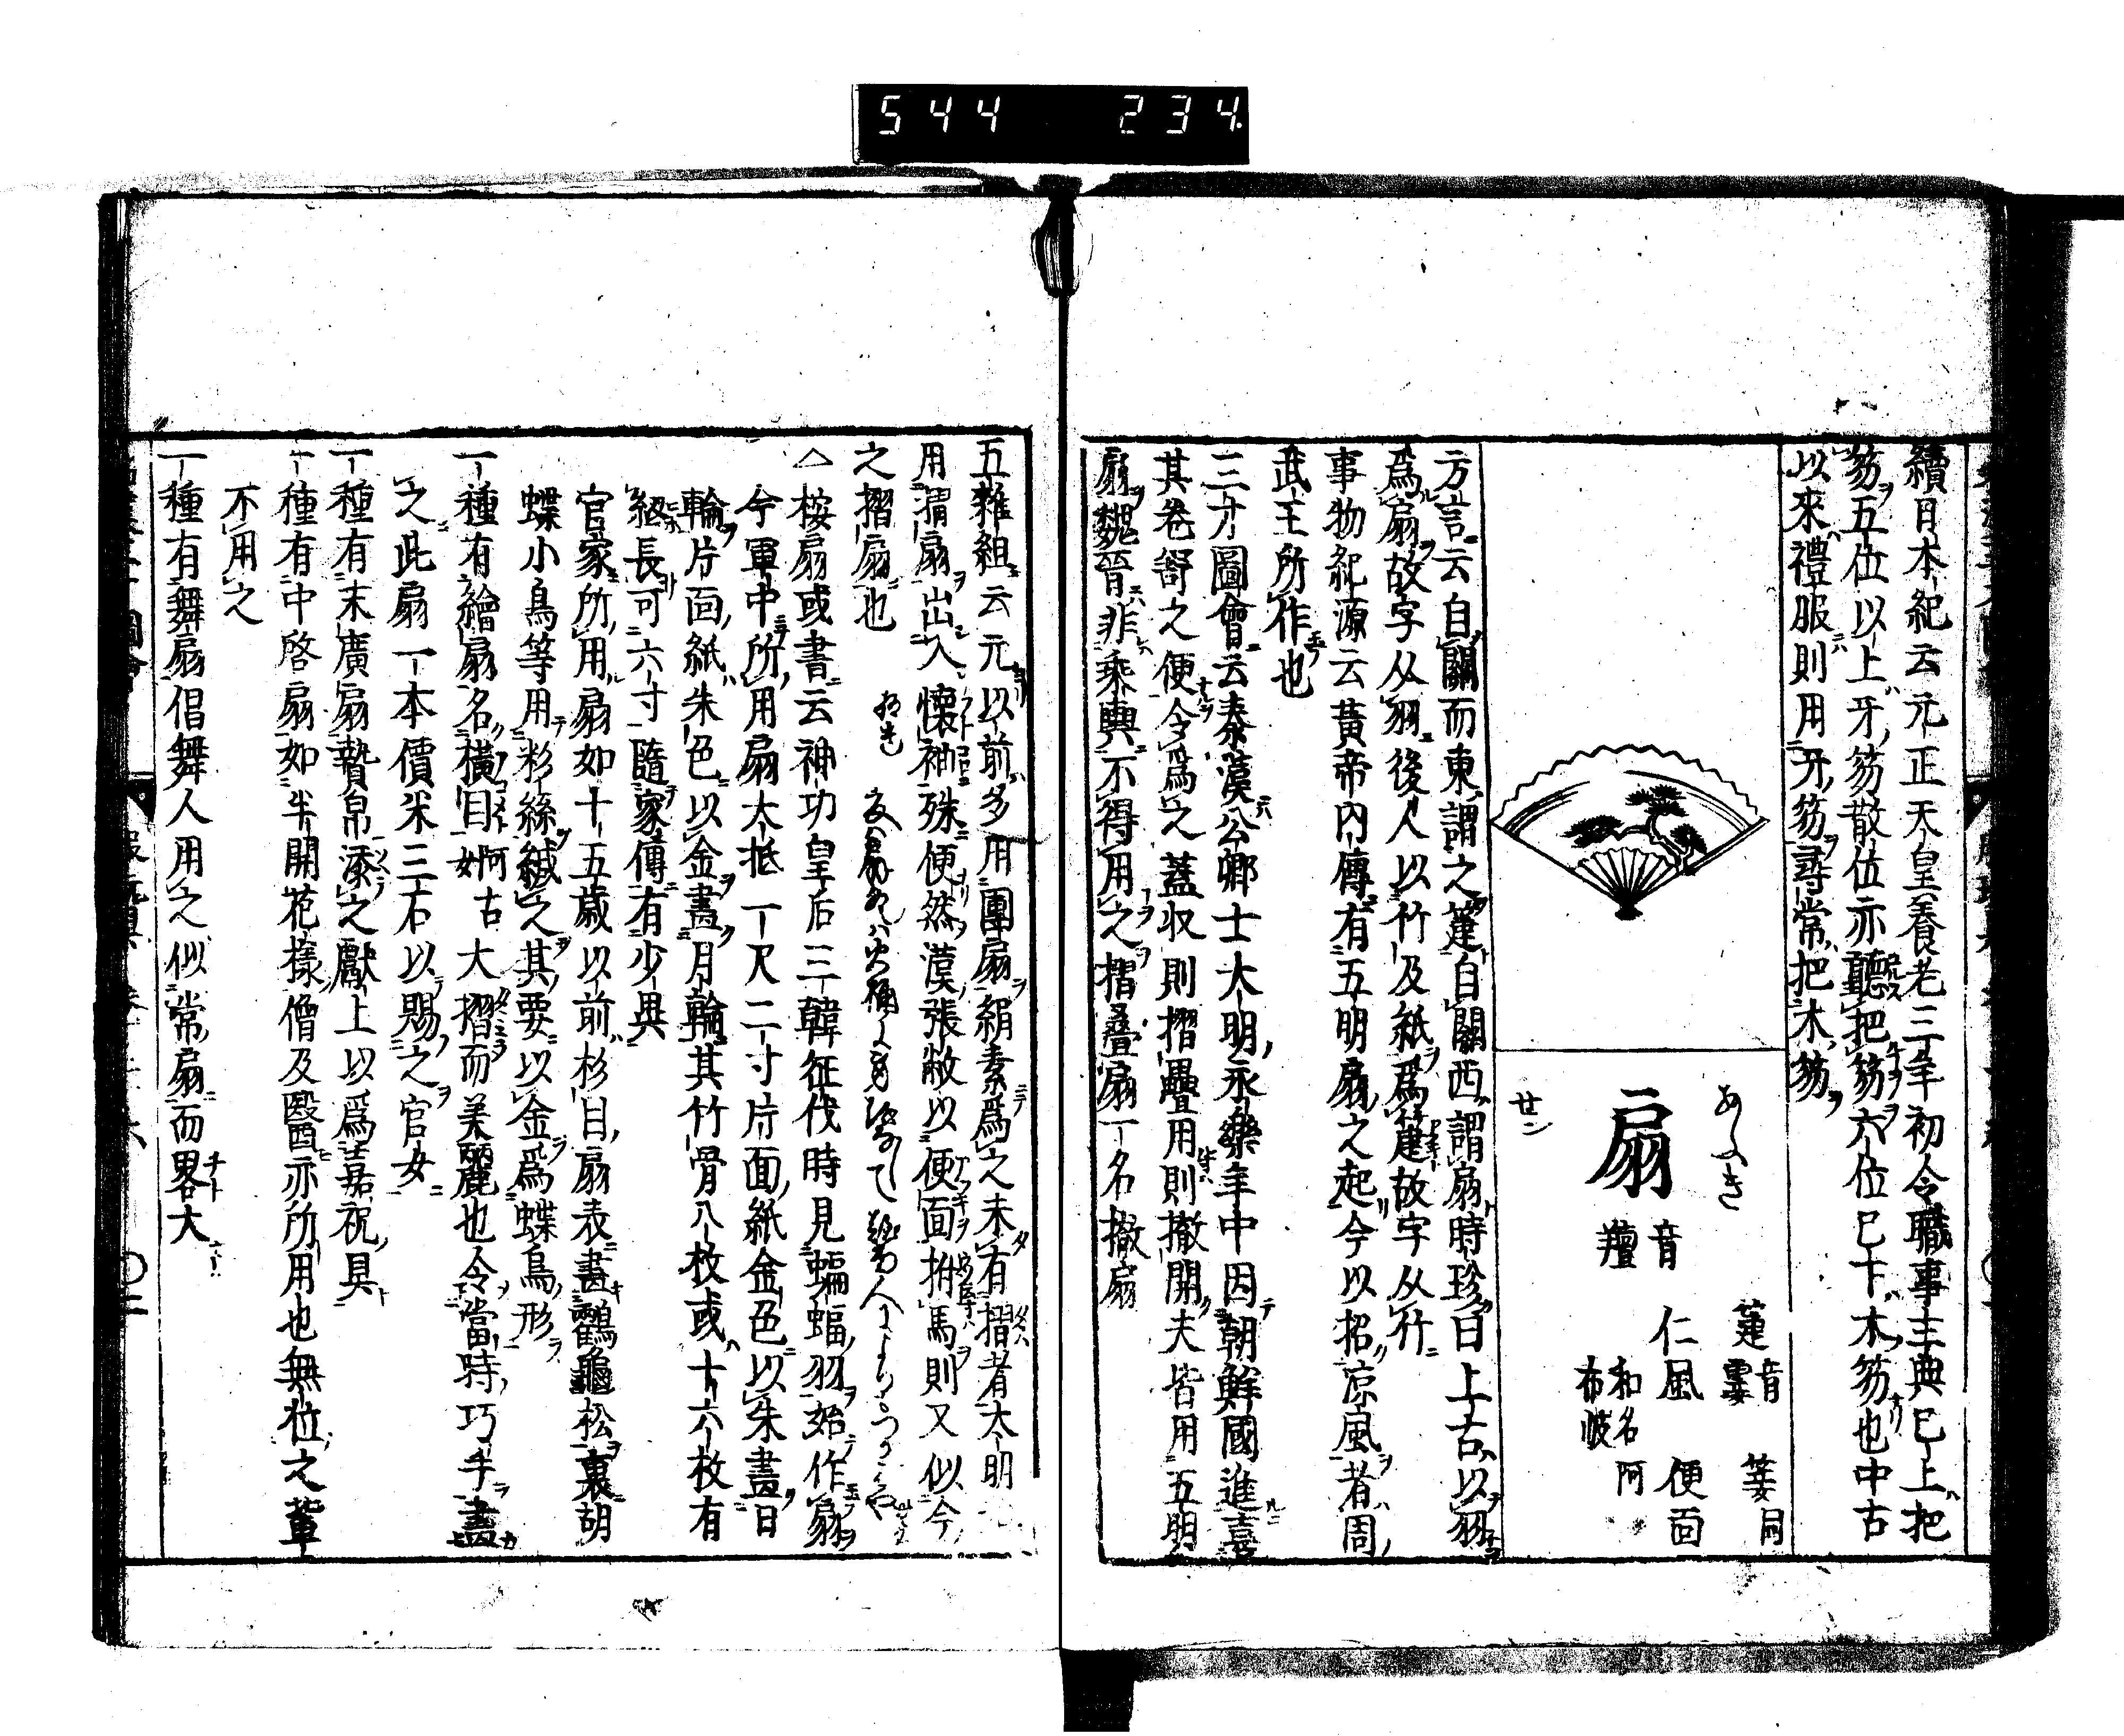 544 234
續日本紀云元正天皇養老三年初令職事主典已上把
笏五位以上牙笏散位亦聽把笏六位已下木笏也中古
以來禮服則用牙笏尋常把木笏
あふき
扇
音
羶
せン
箑音霎
萐同
仁風 便面
和名 阿
布岐
方言云自關而東謂之箑自關西謂扇時珍曰上古以羽
爲扇故字从羽後人以竹及紙爲箑故字从竹
事物紀源云黃帝內傳有五明扇之起今以招涼風者周
武王所作也
三才圖會云秦漢公卿士大明永樂年中因朝鮮國進
其卷舒之便令爲之蓋収則摺疊用則撤開夫皆用五明
扇魏晉非乘輿不得用之摺疊扇一名撤扇
五雜組云元以前多用團扇絹素爲之未有摺者大明
用 扇出入懷袖殊便然漢張敞以便面拊馬則又似今
之摺扇也
△按扇或書云神功皇后三韓征伐時見蝙蝠羽始作扇
今軍中所用扇大抵一尺二寸片面紙金色以朱畫日
輪片面紙朱色以金畫月輪其竹骨八枚或十六枚有
長可六寸隨家傳有少異
官家所用扇如十五歳以前杉目扇表畫鶴龜松裏胡
蝶小鳥等用彩絲緘之其要以金爲蝶鳥形
一種有繪扇名橫目 阿古大摺而美麗也令當時巧手畫
之此扇一本價米三石以賜之官女
一種有末廣扇贄帛添之獻上以爲嘉祝具
一種有中啓扇如半開花樣僧及醫亦所用也無位之輩
不用之
一種有舞扇倡舞人用之似常扇而畧大